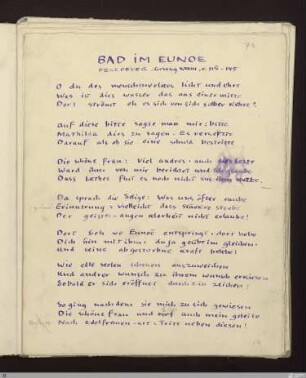 BAD IM EUNOE
FEGEFEUER
O du des menschenvolkes licht und ehre
Was ist dies wasser das aus einer mitte
Dort strömt eh es sich von sich selber
Auf diese bitte sagte man mir: bitte
Mathilda dies zu sagen. Es versetzte
Darauf als ob sie eine schuld bestritte
Die schöne frau: Viel andres auch
Ward ihm von mir berichtet und
Dass Lethes flut es noch nicht
Da sprach die Selige: Was uns öfter raubt
Erinnerung: vielleicht dass
Der geistes-augen klarheit nicht erlaubt
Dort sieh wo Eunoë entspringt: dort hebe
Dich hin mit ihm: du ja geübt im gleiben
und seine abgestorbne kraft belebe!
Wie edle seelen schauen auszuweichen
Und andrer wunsch zu ihrem wunsch
Sobald er sich eröffnet durch ein zeichen:
So ging nachdem sie mich zu sich gewiesen
Die schöne frau und rief auch mein geleite
Nach edelfrauen-art: Tritt neben diesen!